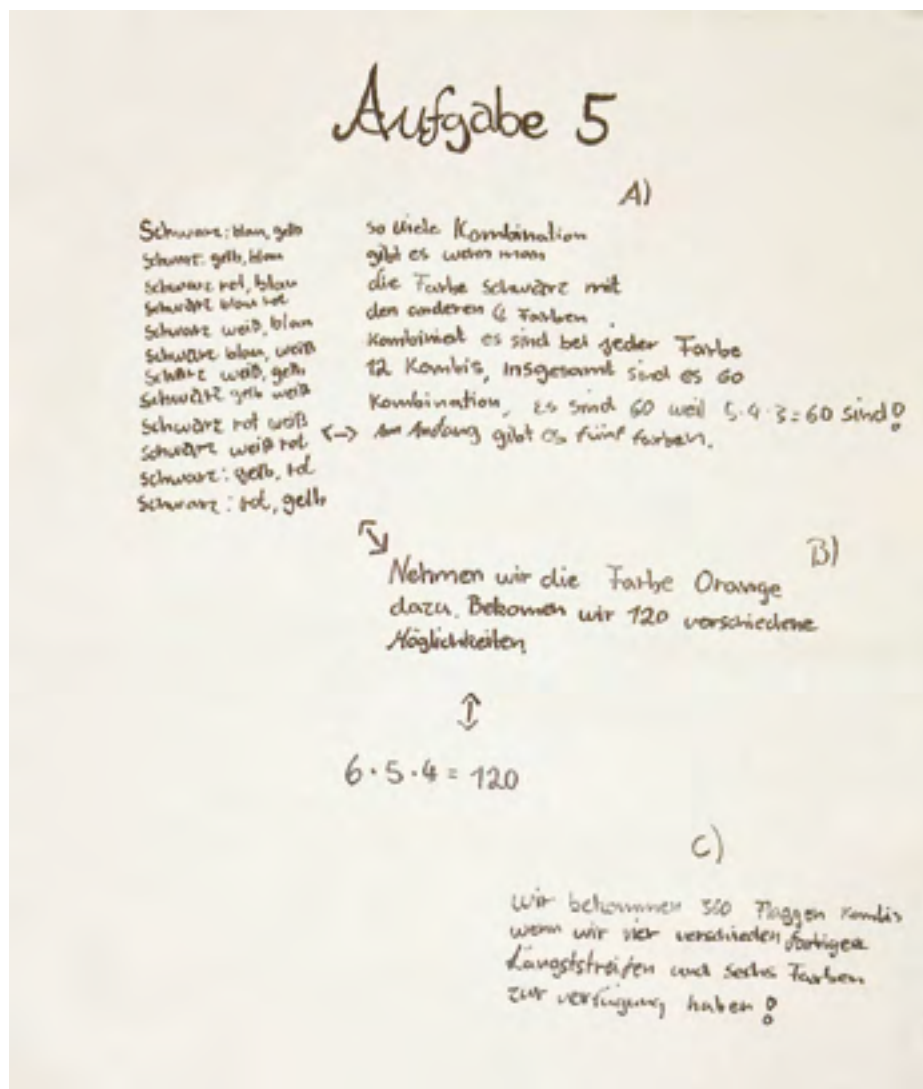 Aufgabe 5
A)
Schwarz: blau, gelb
Schwarz: gelb, blau
Schwarz rot, blau
Schwarz blau rot
Schwarz weiß, blau
Schwarz blau, weiß
Schwarz weiß, gelb
Schwarz gelb weiß
Schwarz rot weiß
Schwarz weiß rot
Schwarz: gelb, rot
Schwarz: rot, gelb
so viele Kombination
gibt es wenn man
die Farbe Schwarz mit
den anderen 4 Farben
Kombiniert es sind bei jeder Farbe
12 Kombis, Insgesamt sind es 60
Kombination, es sind 60 weil 5·4·3=60 sind!
<-> Am Anfang gibt es fünf farben.
B)
Nehmen wir die Farbe Orange
dazu. Bekomen wir 120 verschiedene
Möglichkeiten
6·5·4 = 120
C)
Wir bekommen 360 Flaggen Kombis
wenn wir vier verschieden farbigen
Langststreifen und sechs Farben
zur verfügung haben!